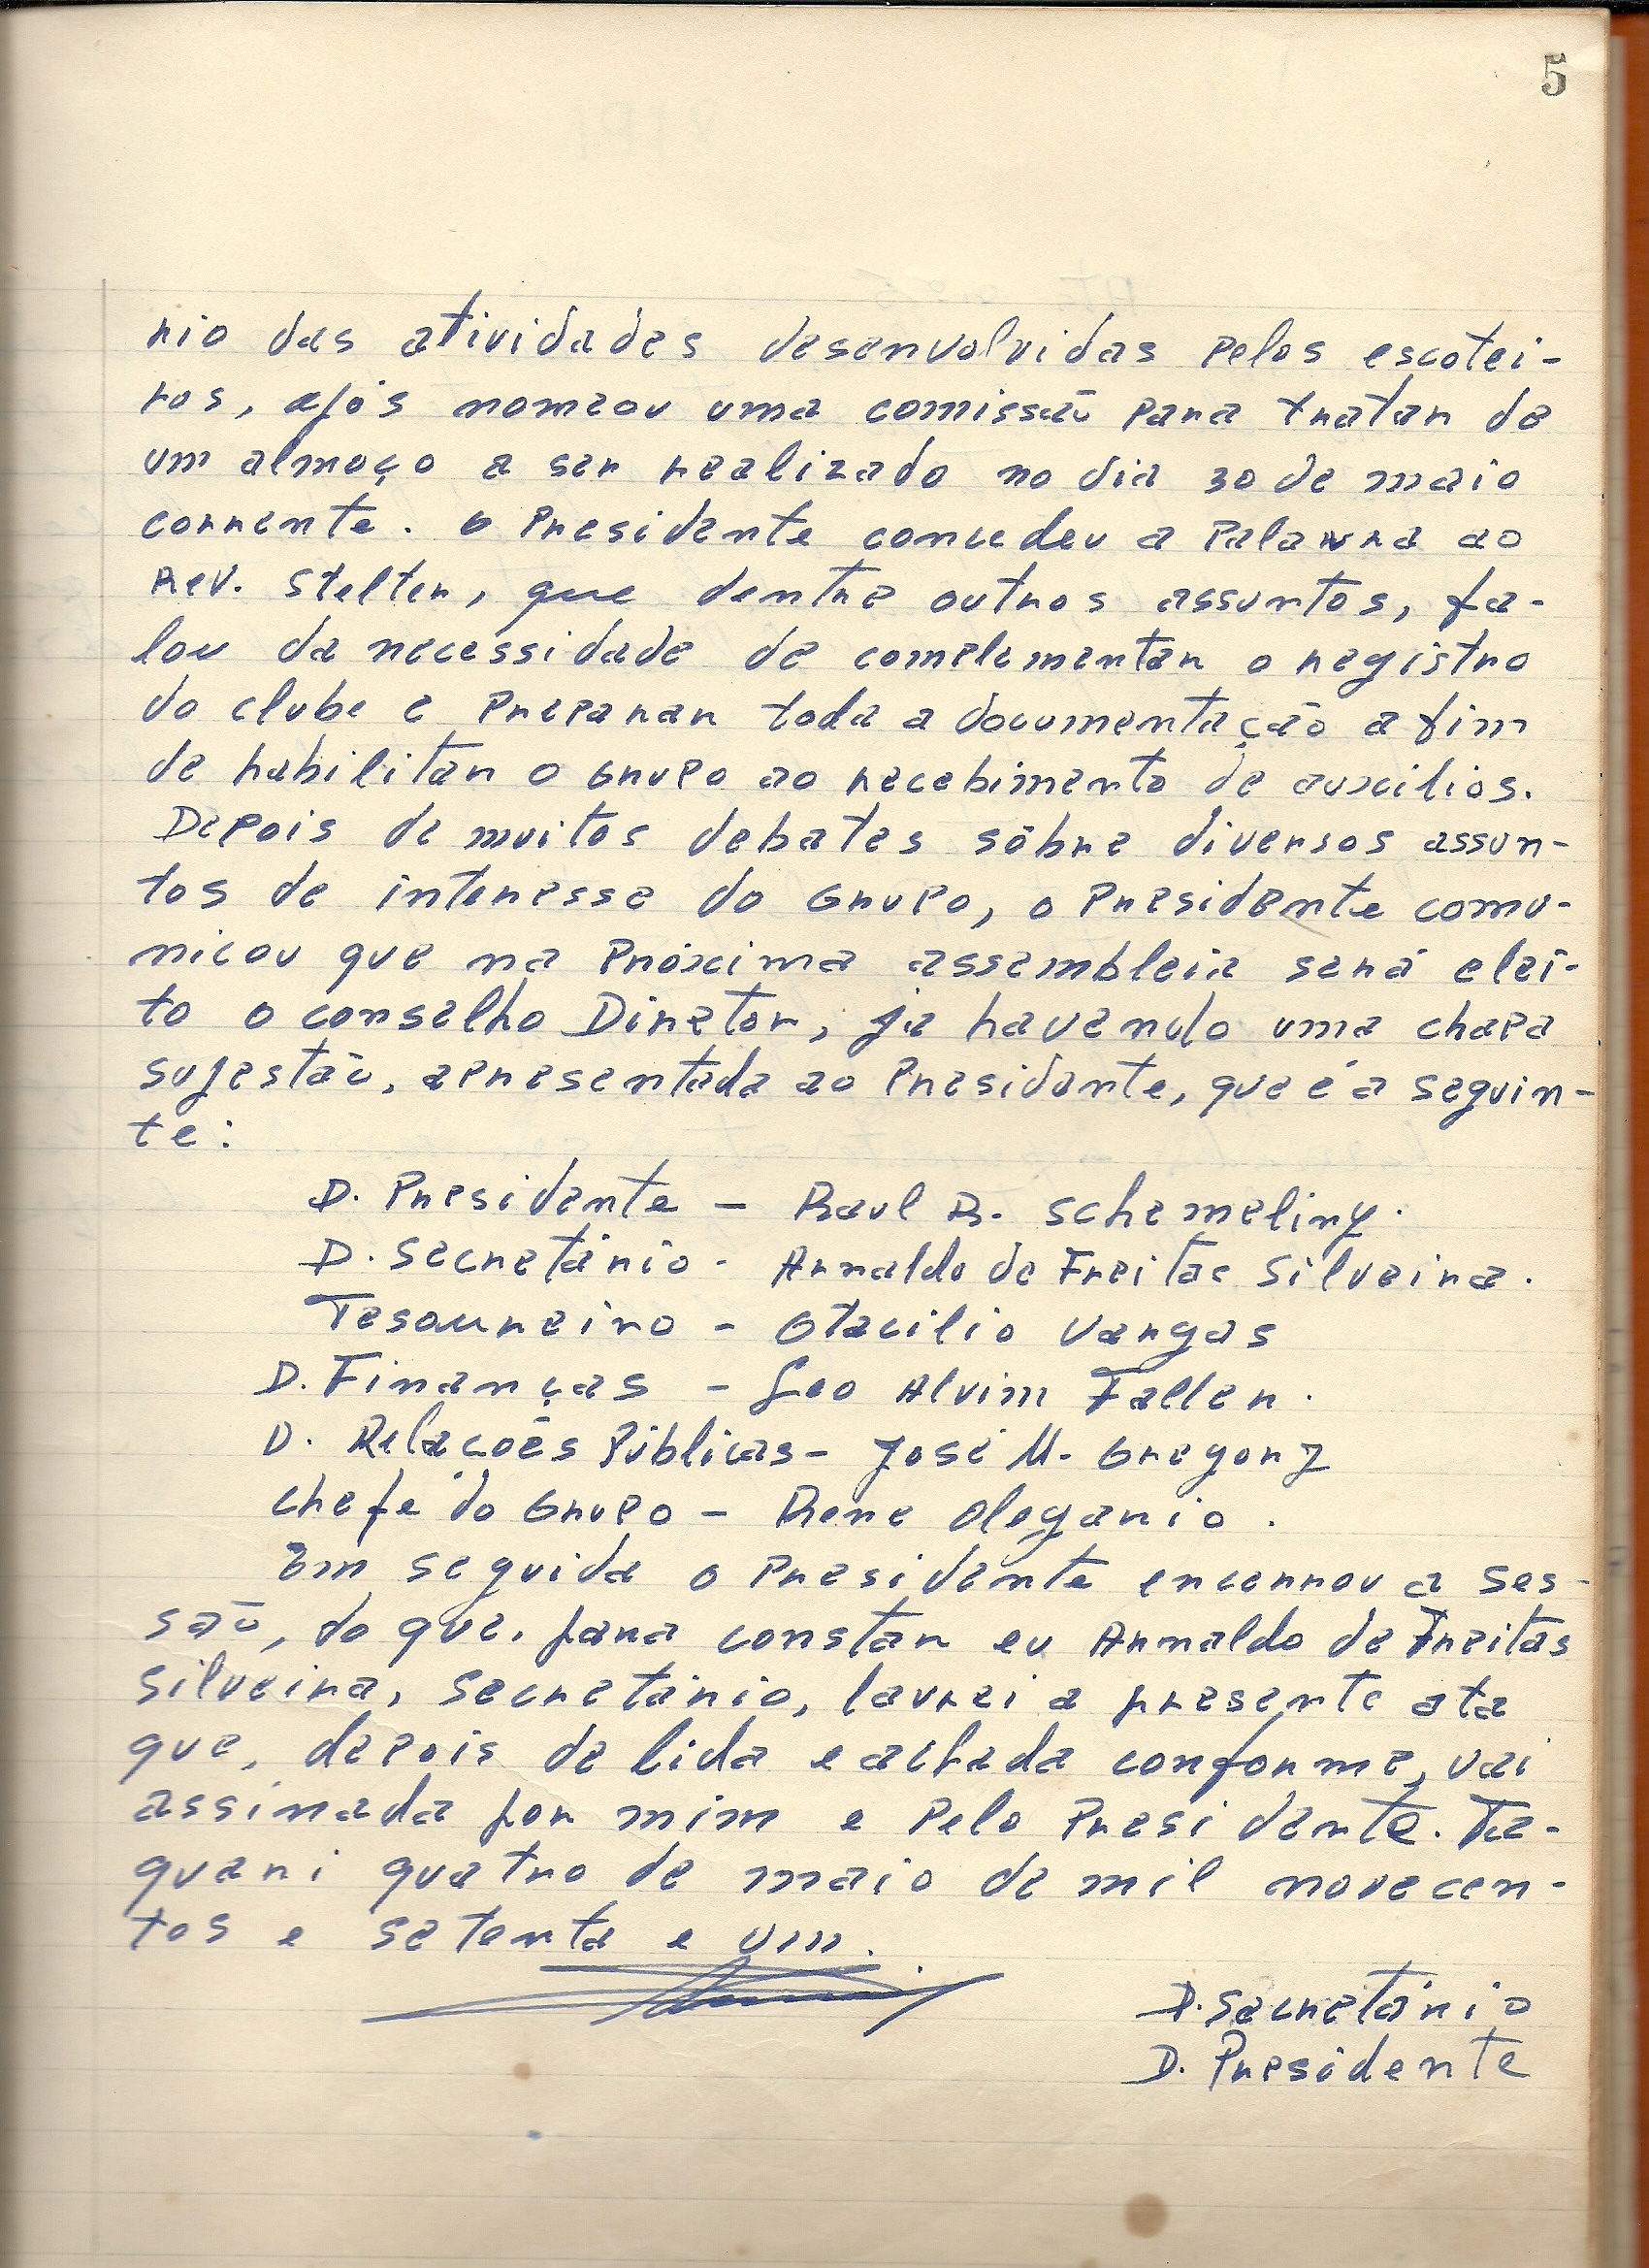 5
rio das atividades desenvolvidas pelos escotei-
ros, após nomeou uma comissão para tratar de
um almoço a ser realizado no dia 30 de maio
corrente. O Presidente concedeu a palavra ao
Rev. Stelter, que dentre outros assuntos, fa-
lou da necessidade de complementar o registro
do clube e preparar toda a documentação a fim
de habilitar o Grupo ao recebimento de auxílios.
Depois de muitos debates sôbre diversos assun-
tos de interesse do Grupo, o Presidente comu-
nicou que na próxima assembleia será elei-
to o conselho Diretor, já havendo uma chapa
sugestão, apresentada ao Presidente, que é a seguin-
te:
D. Presidente – Raul R. Schemeling.
D. Secretário - Arnaldo de Freitas Silveira.
Tesoureiro – Otacilio Vargas
D. Finanças – Leo Alvim Faller.
D. Relações Públicas – José M. Gregory
Chefe do Grupo – Rene Olegario.
Em seguida o Presidente encerrou a ses-
são, do que, para constar eu Arnaldo de Freitas
Silveira, Secretário, lavrei a presente ata
que, depois de lida e achada conforme, vai
assinada por mim e pelo Presidente. Ta-
quari quatro de maio de mil novecen-
tos e setenta e um.
D. Secretário
D. Presidente